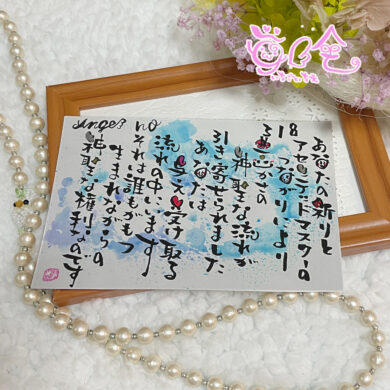 あなたの祈りと
アセンデッドマスターの
つながりにより
豊かさの
神聖な流れが
引き寄せられました
あなたは
与え受け取る
流れの中にいます
それは誰もがもつ
生まれながらの
神聖な権利なのです
18